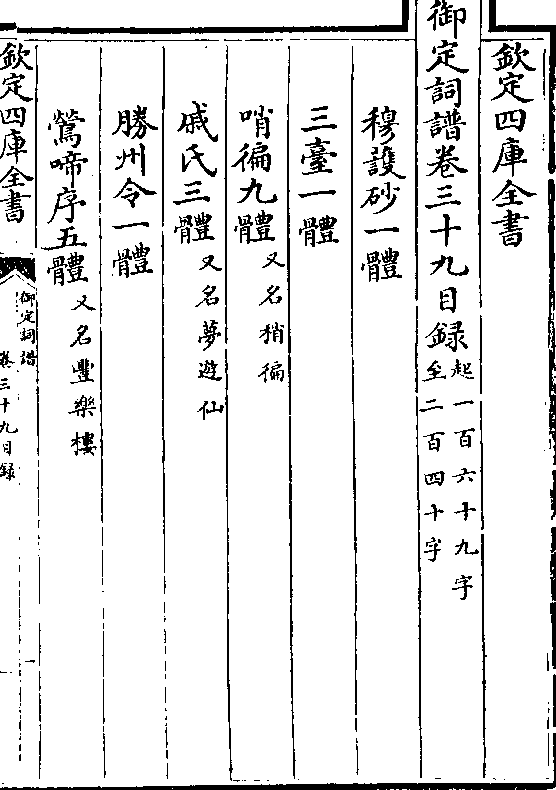 欽定四庫全書
御定詞譜卷三十九目録起一百六十九字至二百四十字
穆護砂一體
三臺一體
哨徧九體又名稍徧
戚氏三體又名夢遊仙
勝州令一體
鶯啼序五體又名豐樂樓
欽定四庫全書
御定詞譜
卷三十九目録
一